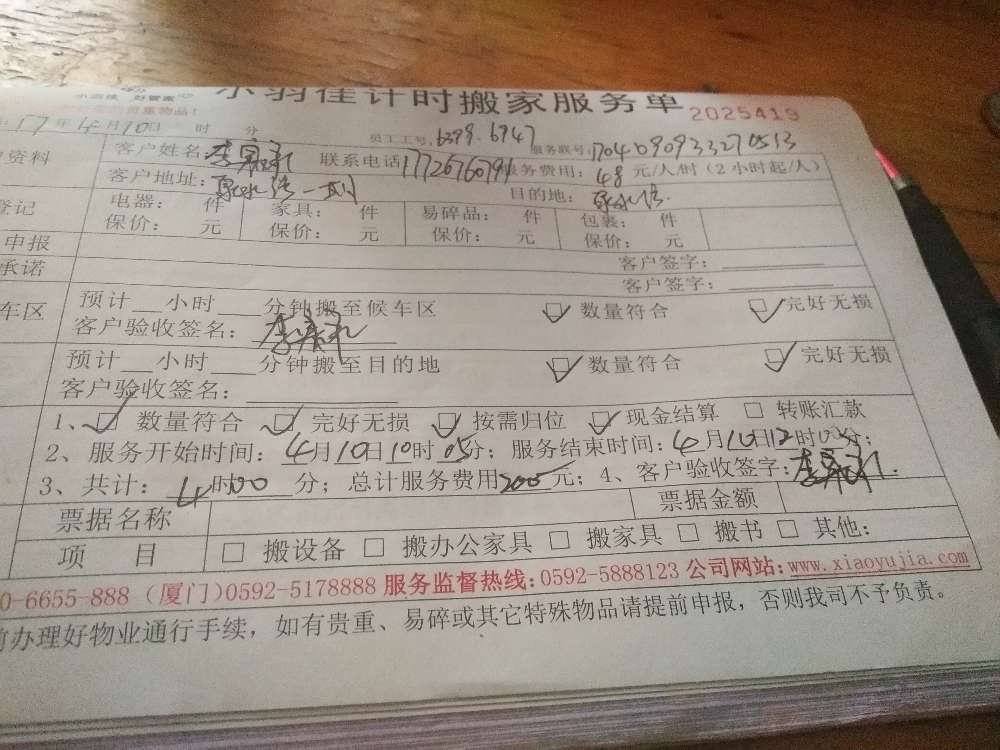 小羽佳 好管家
小羽佳计时搬家服务单 2025419
重物品!
17年4月10日 时 分 员工工号:6399.6947 服务联号:1704090933270513
资料 客户姓名: 联系电话 服务费用:48元/人/时(2小时起/人)
客户地址: 目的地:
登记 电器: 件 家具: 件 易碎品: 件 包装: 件
保价: 元 保价: 元 保价: 元 保价: 元
申报 客户签字:
承诺 客户签字:
车区 预计 小时 分钟搬至候车区 数量符合 完好无损
客户验收签名:
预计 小时 分钟搬至目的地 数量符合 完好无损
客户验收签名:
1、 数量符合 完好无损 按需归位 现金结算 转账汇款
2、服务开始时间:4月10日10时05分;服务结束时间:4月10日12时00分;
3、共计:4时00分;总计服务费用200元;4、客户验收签字:
票据名称 票据金额
项 目 搬设备 搬办公家具 搬家具 搬书 其他:
0-6655-888(厦门)0592-5178888 服务监督热线:0592-5888123 公司网站:www.xiaoyujia.com
办理好物业通行手续,如有贵重、易碎或其它特殊物品请提前申报,否则我司不予负责。